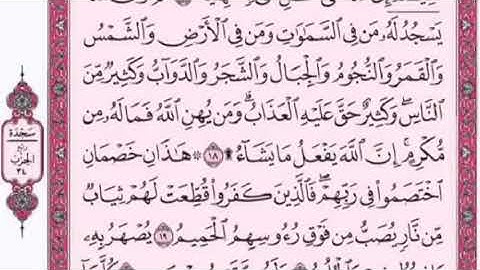 يَسْجُدُ لَهُۥ مَن فِى ٱلسَّمَٰوَٰتِ وَمَن فِى ٱلْأَرْضِ وَٱلشَّمْسُ
وَٱلْقَمَرُ وَٱلنُّجُومُ وَٱلْجِبَالُ وَٱلشَّجَرُ وَٱلدَّوَآبُّ وَكَثِيرٌ مِّنَ
ٱلنَّاسِ ۖ وَكَثِيرٌ حَقَّ عَلَيْهِ ٱلْعَذَابُ ۗ وَمَن يُهِنِ ٱللَّهُ فَمَا لَهُۥ مِن
مُّكْرِمٍ ۚ إِنَّ ٱللَّهَ يَفْعَلُ مَا يَشَآءُ ۩ ١٨ ۞ هَٰذَانِ خَصْمَانِ
ٱخْتَصَمُوا۟ فِى رَبِّهِمْ ۖ فَٱلَّذِينَ كَفَرُوا۟ قُطِّعَتْ لَهُمْ ثِيَابٌ
مِّن نَّارٍ يُصَبُّ مِن فَوْقِ رُءُوسِهِمُ ٱلْحَمِيمُ ١٩ يُصْهَرُ بِهِۦ
سَجْدَة
الحِزْب
٣٤